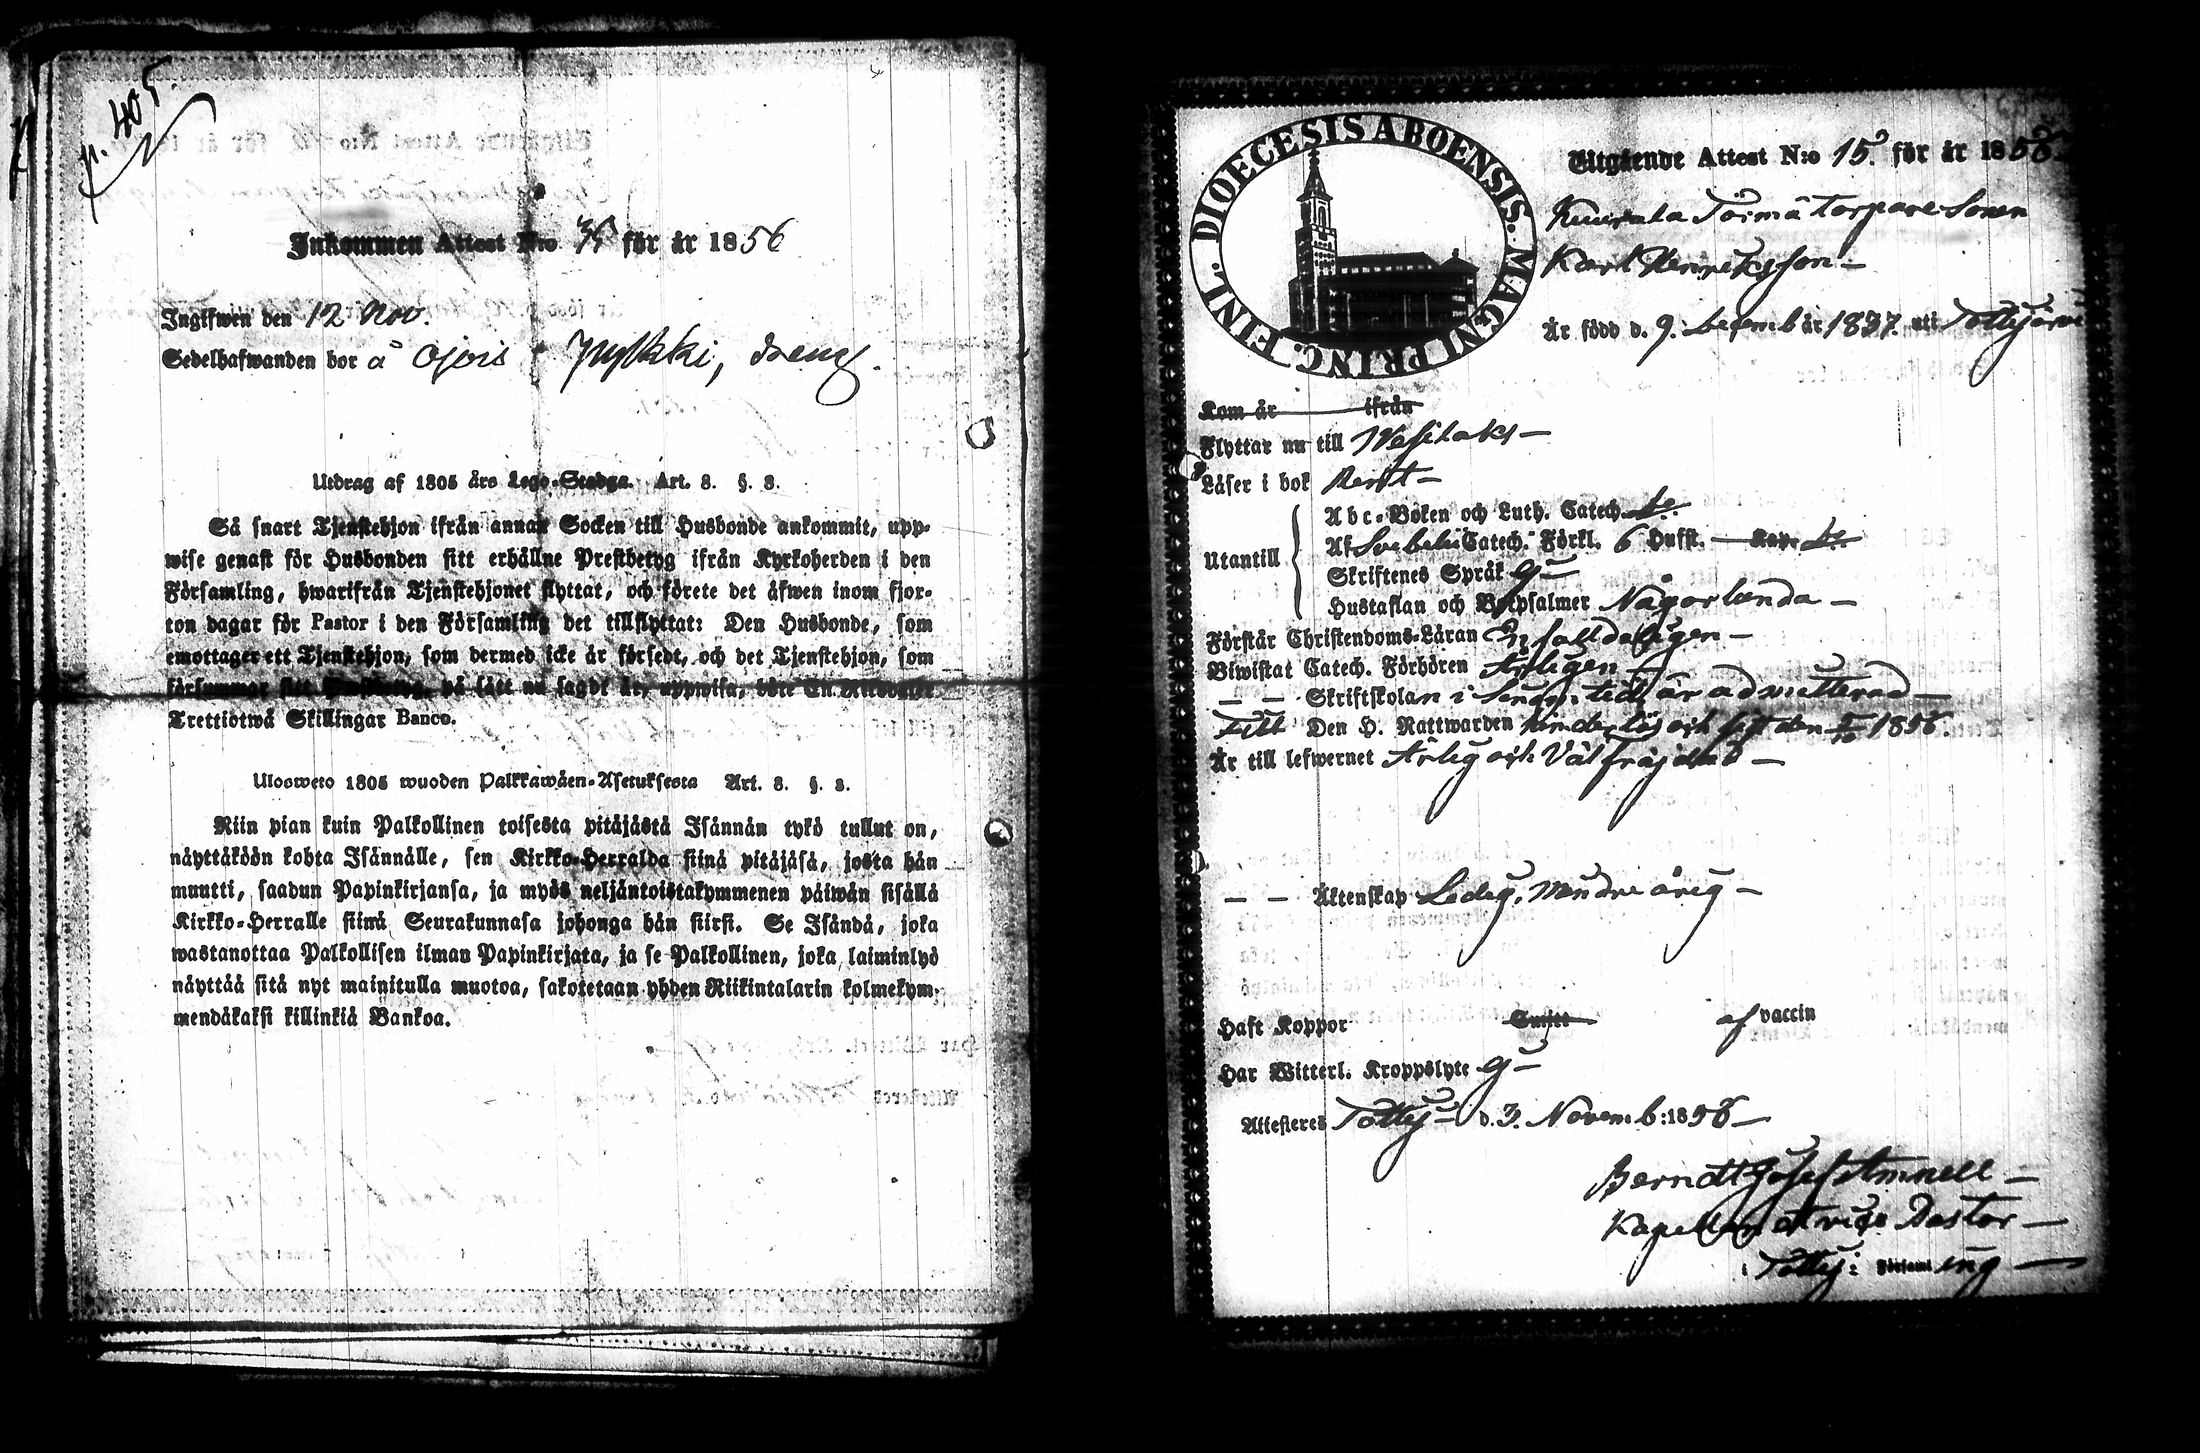 p. 405.
Inkommen Attest N:o 35 för år 1856
Ingifwen den 12 Nov.
Sedelhafwanden bor å Ojois Pylkki, dreng.
Utdrag af 1805 års Lego-Stadga. Art. 8. §. 8.
Så snart Tjenstehjon ifrån annan Socken till Husbonde ankommit, upp-
wise genast för Husbonden sitt erhållne Prestbetyg ifrån Kyrkoherden i den
Församling, hwarifrån Tjenstehjonet flyttat, och förete det äfwen inom fjor-
ton dagar för Pastor i den Församling det tillflyttat: Den Husbonde, som
emottager ett Tjenstehjon, som dermed icke är försedt, och det Tjenstehjon, som
försummar sitt Prestbetyg, på sätt nu sagdt är, uppwisa, böte En Riksdaler
Trettiotwå Skillingar Banco.
Ulosweto 1805 wuoden Palkkawäen-Asetuksesta Art. 8. §. 8.
Niin pian kuin Palkollinen toisesta pitäjästä Isännän tykö tullut on,
näyttäköön kohta Isännälle, sen Kirkko-Herralda siinä pitäjäsä, josta hän
muutti, saadun Papinkirjansa, ja myös neljäntoistakymmenen päiwän sisällä
Kirkko-Herralle siinä Seurakunnasa johonga hän siirsi. Se Isändä, joka
wastanottaa Palkollisen ilman Papinkirjata, ja se Palkollinen, joka laiminlyö
näyttää sitä nyt mainitulla muotoa, sakotetaan yhden Riikintalarin kolmekym-
mendäkaksi killinkiä Bankoa.
DIOECESIS ABOENSIS. MAGNI PRINC. FINL.
Utgående Attest N:o 15. för år 1856
Kuurala Törmä Torpare Sonen
Karl Henriksson —
Är född d. 9. Decemb år 1837. uti Tottijärvi
Kom år ifrån
Flyttar nu till Wesilaks —
Läser i bok Rent —
Utantill
Abc-Boken och Luth. Catech.
Af Svebelii Catech. Förkl. 6 Hufst. — Kap.
Skriftenes Språk
Hustaflan och Botpsalmer Någorlunda —
Förstår Christendoms-Läran Enfalldeligen —
Biwistat Catech. Förhören Årligen —
— — Skriftskolan i senare tid, är admitterad —
Till Den H. Nattwarden 1856.
Är till lefwernet Ärlig och Väl frajdad —
— — Äktenskap Ledig, Mindre årig —
Haft Koppor Smitt af vaccin
Har Witterl. Kroppslyte
Attesteres Tottij — d. 3. Novemb: 1856 —
Berndt Josef Amnell —
Kapellan at vice Pastor —
i Tottij: Församl ing —